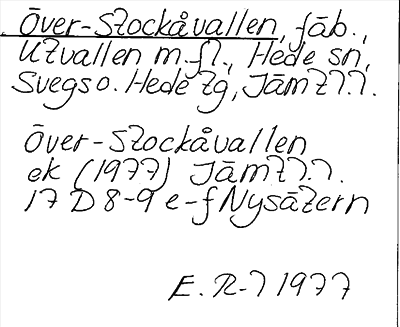 Över-Stockåvallen, fäb.,
Utvallen m.fl., Hede sn,
Svegs o. Hede tg, Jämtl.
Över-Stockåvallen
ek (1977) Jämtl.
17 D 8-9 e-f Nysätern
E. R-l 1977